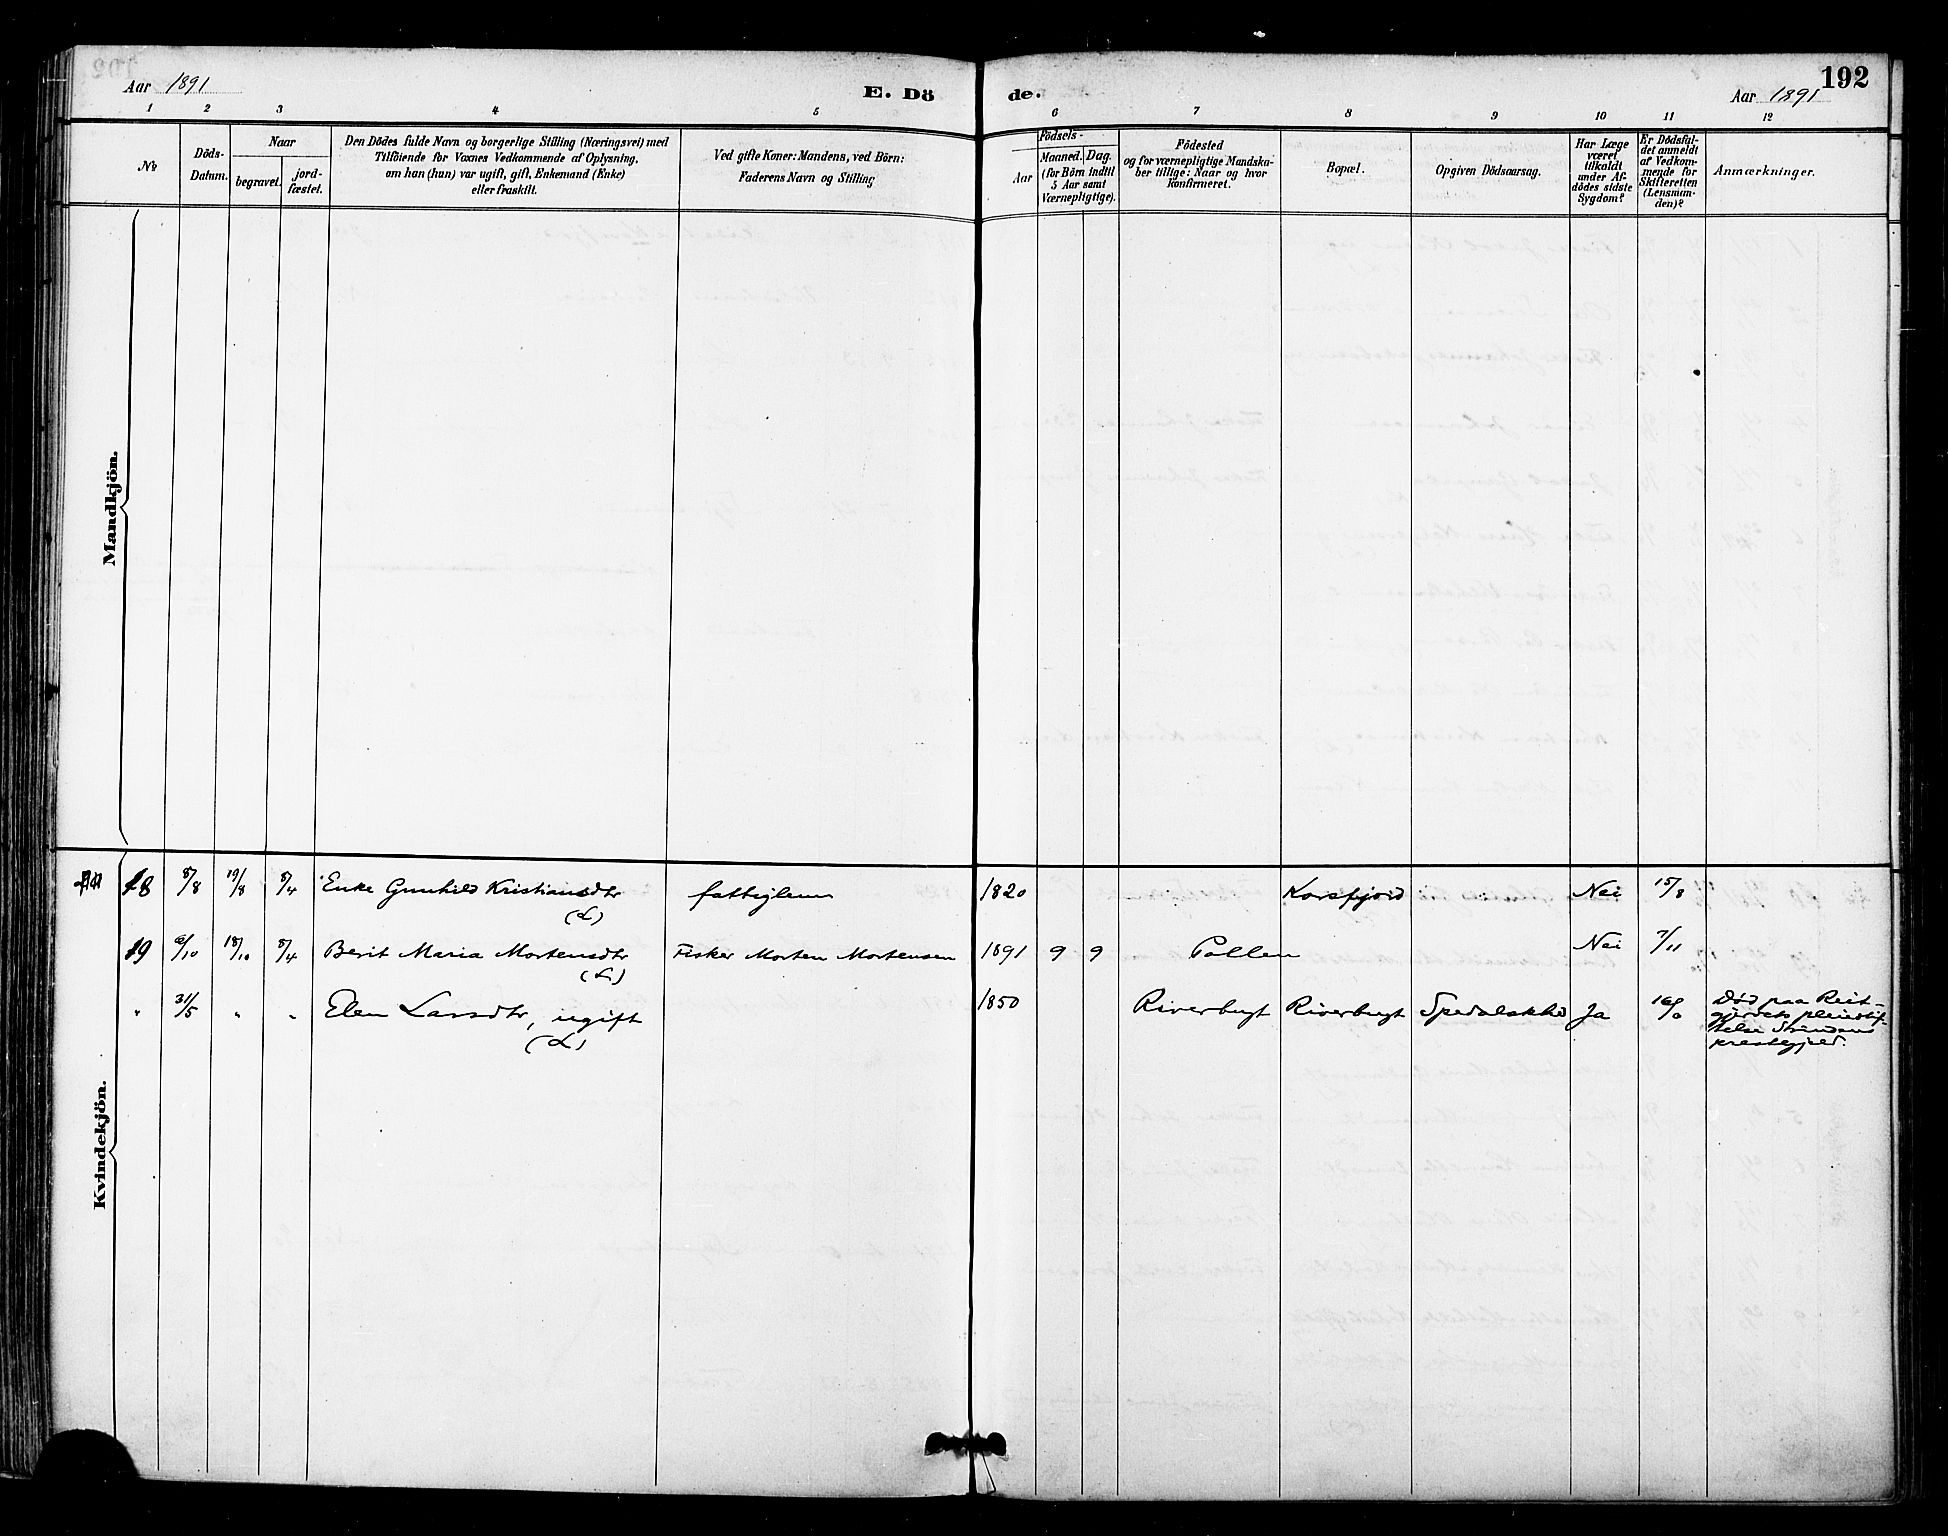 Aar 1891
E. Dö
de.
Aar 1891
192
1 2 3 4 5 6 7 8 9 10 11 12
No
Döds-
Datum.
Naar
begravet.
jord-
fæstet.
Den Dödes fulde Navn og borgerlige Stilling (Næringsvei) med
Tilföiende for Voxnes Vedkommende af Oplysning,
om han (hun) var ugift, gift, Enkemand (Enke)
eller fraskilt.
Ved gifte Koner: Mandens, ved Börn:
Faderens Navn og Stilling
Födsels-
Aar
Maaned. Dag.
(for Börn indtil
5 Aar samt
Værnepligtige).
Födested
og for værnepligtige Mandska-
ber tillige: Naar og hvor
konfirmeret.
Bopæl.
Opgiven Dödsaarsag.
Har Læge
været
tilkaldt
under Af-
dödes sidste
Sygdom?
Er Dödsfal-
det anmeldt
af Vedkom-
mende for
Skifteretten
(Lensman-
den)?
Anmærkninger.
Mandkjön.
Kvindekjön.
18 8/8 19/8 8/4 Enke Gunhild Kristiansdtr fattiglem 1820 Korsfjord Nei 15/8
(L)
19 6/10 18/10 8/4 Berit Maria Mortensdtr Fisker Morten Mortensen 1891 9 9 Pollen Nei 7/11
(L)
" 31/5 " " Elen Larsdtr, ugift 1850 Riverbugt Riverbugt Spedalskhed Ja
(L)
Død paa Reit-
gjerdets pleiestif-
telse Strindens
prestegjeld.